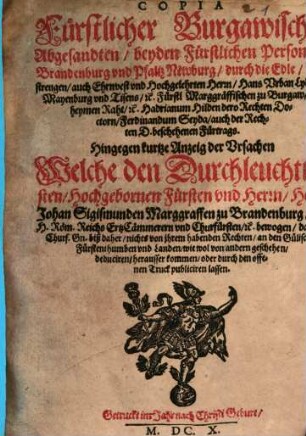 COPIA
Fürstlicher Burgawisch
Abgesandten / beyden Fürstlichen Person
Brandenburg vnd Pfaltz Newburg / durch die Edle /
strengen / auch Ehrnvest vnd Hochgelehrten Herrn / Hans Vrban
Mayenburg vnd Tisens / ꝛc. Fürstl Marggräffischen zu Burgaw
heymen Raht / ꝛc. Hadrianum Hilden dero Rechten Do-
ctorn / Ferdinandum Seyda / auch der Rech-
ten D. beschehenen Fürtrags.
Hingegen kurtze Anzeig der Vrsachen
Welche den Durchleuchti
sten / Hochgebornen Fürsten vnd Herrn / He
Johan Sigismunden Marggraffen zu Brandenburg
H. Röm. Reichs Ertz Cämmeren vnd Churfürsten / ꝛc. bewogen / da
Churf. Gn. biß daher / nichts von ihrem habenden Rechten / an den Gülisc
Fürstenthumben vnd Landen wie wol von andern geschehen /
deduciren / herausser kommen / oder durch den offe-
nen Truck publiciren lassen.
Getruckt im Jahr nach Christi Geburt /
M. DC. X.